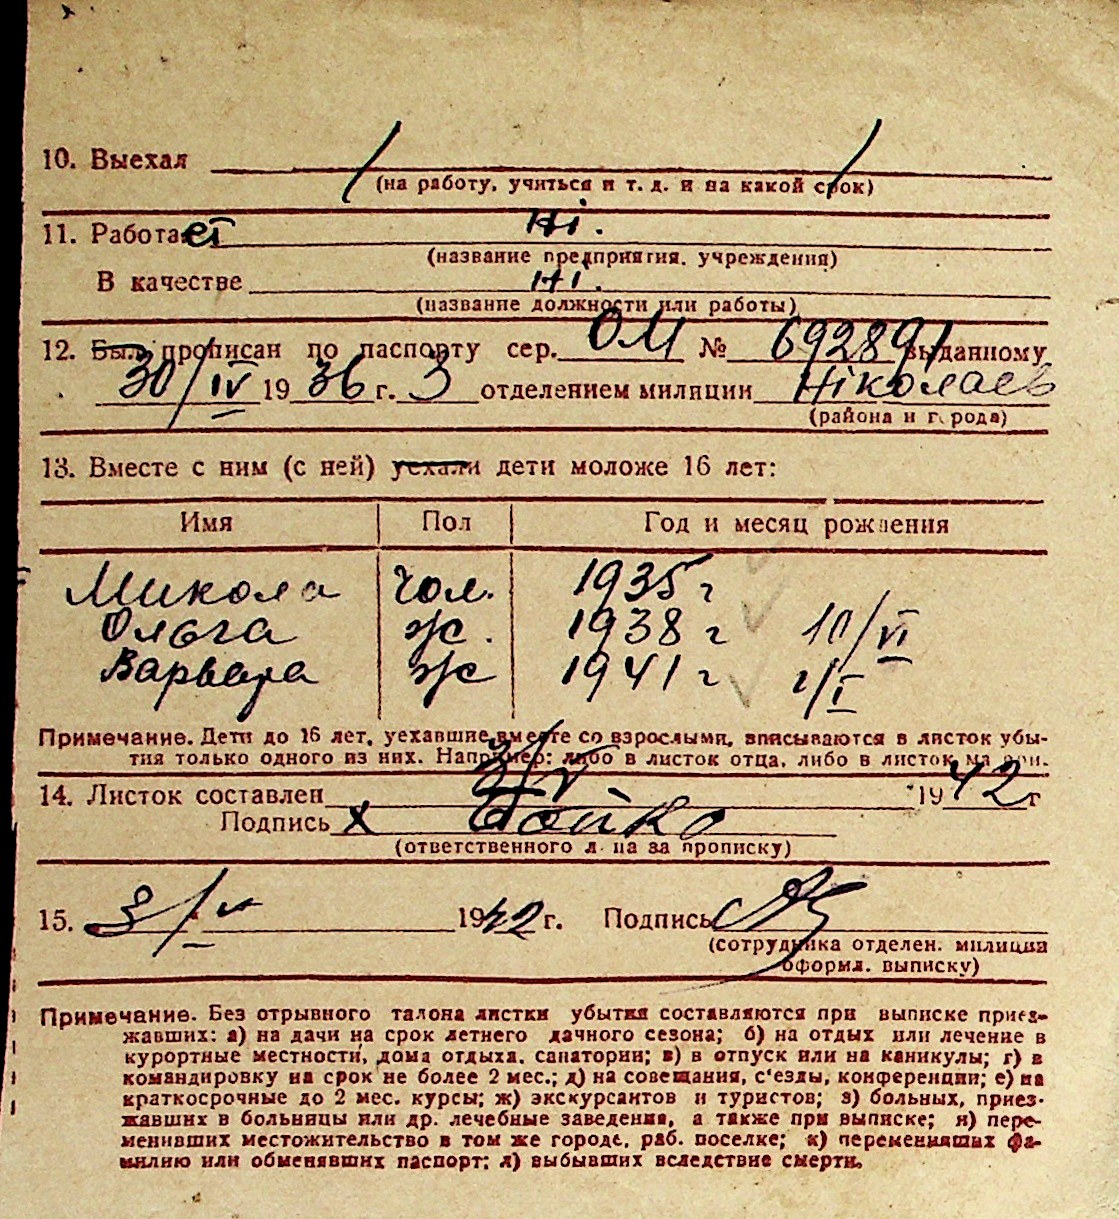 10. Выехал
(на работу, учиться и т. д. и на какой срок)
11. Работает Ні.
(название предприятия, учреждения)
В качестве Ні.
(название должности или работы)
12. Был прописан по паспорту сер. ОМ № 692891 выданному
30/IV 1936 г. 3 отделением милиции Ніколаев
(района и города)
13. Вместе с ним (с ней) уехали дети моложе 16 лет:
Имя Пол Год и месяц рождения
Микола чол. 1935 г
Ольга ж. 1938 г 10/VI
Варвара ж 1941 г /I
Примечание. Дети до 16 лет, уехавшие вместе со взрослыми, вписываются в листок убы-
тия только одного из них. Например: либо в листок отца, либо в листок ма ери.
14. Листок составлен 3/V 1942 г
Подпись х Бойко
(ответственного л на за прописку)
15. 3/V 1942 г. Подпись
(сотрудника отделен. милиции
оформл. выписку)
Примечание. Без отрывного талона листки убытия составляются при выписке приез-
жавших: а) на дачи на срок летнего дачного сезона; б) на отдых или лечение в
курортные местности, дома отдыха, санатории; в) в отпуск или на каникулы; г) в
командировку на срок не более 2 мес.; д) на совещания, с'езды, конференции; е) на
краткосрочные до 2 мес. курсы; ж) экскурсантов и туристов; з) больных, приез-
жавших в больницы или др. лечебные заведения, а также при выписке; и) пере-
менивших местожительство в том же городе, раб. поселке; к) переменивших фа-
милию или обменявших паспорт; л) выбывших вследствие смерти.